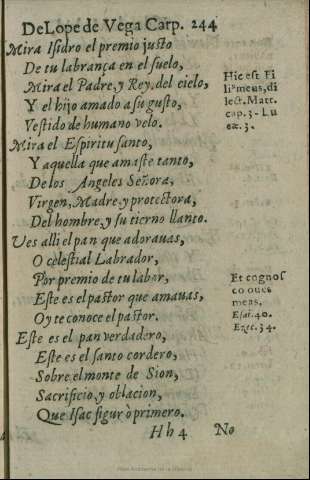 De Lope de Vega Carp. 244
Mira Isidro el premio justo
De tu labrança en el suelo,
Mira el Padre, y Rey, del cielo,
Y el hijo amado a su gusto,
Vestido de humano velo.
Mira el Espiritu santo,
Y aquella que amaste tanto,
De los Angeles Señora,
Virgen, Madre, y protectora,
Del hombre, y su tierno llanto.
Ves alli el pan que adorauas,
O celestial Labrador,
Por premio de tu labor,
Este es el pastor que amauas,
Oy te conoce el pastor.
Este es el pan verdadero,
Este es el santo cordero,
Sobre el monte de Sion,
Sacrificio, y oblacion,
Que Isac figurò primero.
Hic est Fi
li⁹ meus, di
lect. Matt.
cap. 3. Lu
cæ. 3.
Et cognos
co oues
meas.
Esai. 40.
Ezec. 34.
Hh 4 No
Real Academia de la Historia